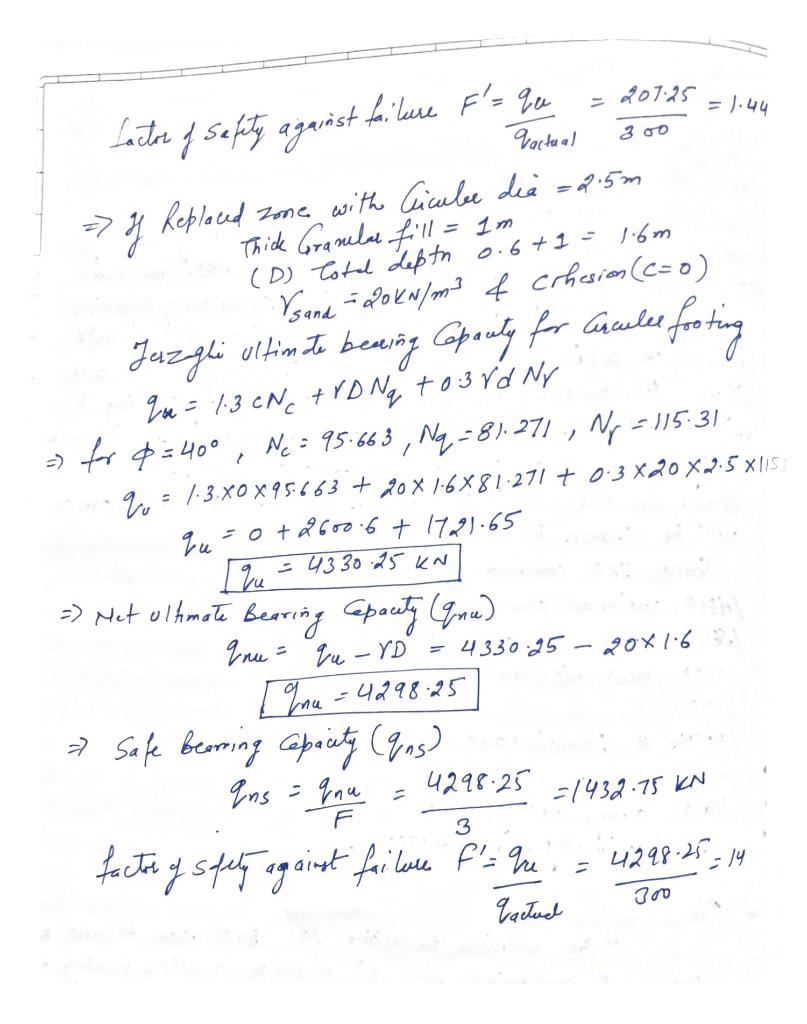 factor of safety against failure F' = qu / qactual = 207.25 / 300 = 1.44
=> If Replaced zone with Circular dia = 2.5m
Thick Granular fill = 1m
(D) Total depth 0.6 + 1 = 1.6m
γsand = 20KN/m³ & Cohesion (C=0)
Terzaghi ultimate bearing Capacity for Circular footing
qu = 1.3 cNc + γDNq + 0.3 γd Nγ
=> for φ = 40°, Nc = 95.663, Nq = 81.271, Nγ = 115.31
qu = 1.3 X 0 X 95.663 + 20 X 1.6 X 81.271 + 0.3 X 20 X 2.5 X 115.3
qu = 0 + 2600.6 + 1721.65
qu = 4330.25 KN
=> Net ultimate Bearing Capacity (qnu)
qnu = qu - γD = 4330.25 - 20 X 1.6
qnu = 4298.25
=> Safe bearing Capacity (qns)
qns = qnu / F = 4298.25 / 3 = 1432.75 KN
factor of safety against failure F' = qu / qactual = 4298.25 / 300 = 14